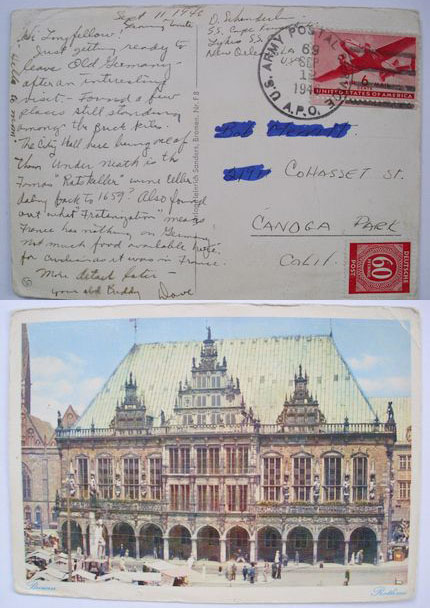 Sept 11, 1946
Hi Longfellow!
Just getting ready to
leave Old Germany -
after an interesting
visit - Found a few
places still standing
among the Brick Kites.
"The City Hall here being one of
them. Under neath is the
famous "Ratskeller" wine cellar
dating back to 1659? Also found
out what "Fraternization" means
France has nothing on Germany
Not much food available here
for civilians as it was in France.
More detail later -
your old Buddy
Dave
S.S. Cape
Lykes S.S.
New Orleans
U.S. ARMY POSTAL SERVICE
A.P.O.
69
SEP
12
194
6
UNITED STATES OF AMERICA
COHASSET ST.
CANOGA PARK
CALIF.
DEUTSCHE
POST
60
Bremen
Rathaus